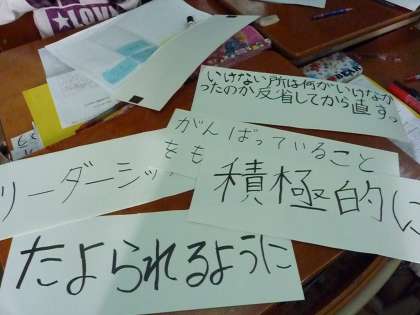 いけない所は何がいけなか
ったのか反省してから直すっ
がんばっていること
をも
リーダーシッ
積極的に
たよられるように